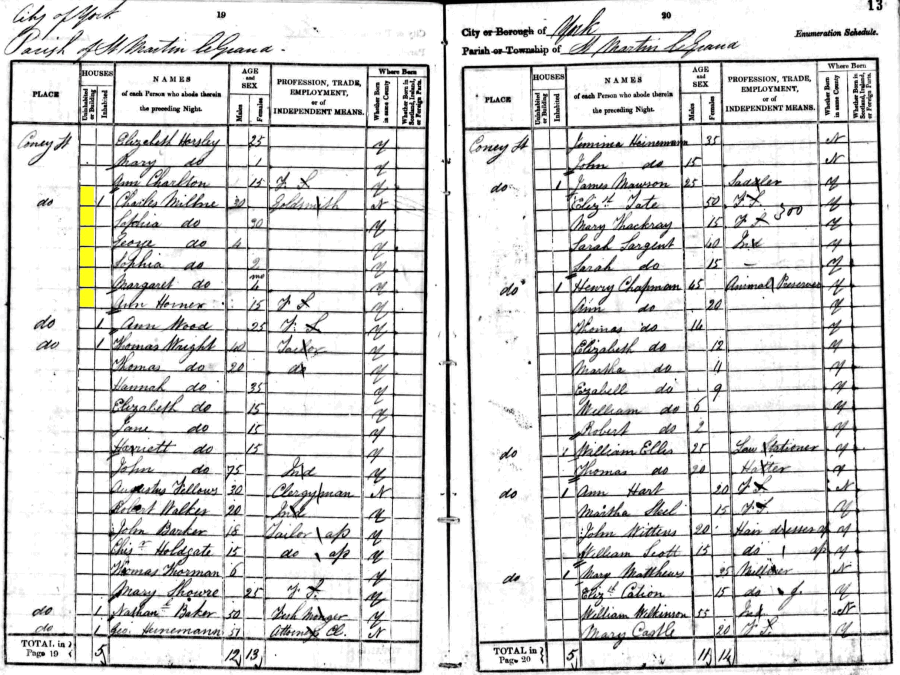 City of York
19
Parish of St Martin LeGrand.
PLACE
HOUSES
Uninhabited or Building
Inhabited
NAMES
of each Person who abode therein
the preceding Night.
AGE
and
SEX
Males
Females
PROFESSION, TRADE,
EMPLOYMENT,
or of
INDEPENDENT MEANS.
Where Born
Whether Born in same County
Whether Born in Scotland, Ireland, or Foreign Parts.
Coney St Elizabeth Horsley 25 Y
Mary do 1 Y
Ann Charlton 15 F. S. Y
do 1 Charles Milne 30 Goldsmith N
Sophia do 30 Y
George do 4 Y
Sophia do 2 Y
Margaret do mo 4 Y
Ann Horner 15 F. S. Y
do 1 Ann Wood 25 F. S. Y
do 1 Thomas Wright 40 Tailor Y
Thomas do 20 do Y
Hannah do 35 Y
Elizabeth do 15 Y
Jane do 15 Y
Harriett do 15 Y
John do 75 Ind Y
Augustus Fellows 30 Clergyman N
Robert Walker 20 Ind Y
John Barker 18 Tailor ap Y
Chisr Holdgate 15 do ap Y
Thomas Thorman 6 Y
Mary 25 F. S. Y
do 1 Nathan Baker 50 Fish Monger Y
do 1 Geo. Heinemann 51 Attorneys Cl. N
TOTAL in
Page 19
5 12 13
20
13
City or Borough of York
Enumeration Schedule.
Parish or Township of St Martin LeGrand
PLACE
HOUSES
Uninhabited or Building
Inhabited
NAMES
of each Person who abode therein
the preceding Night.
AGE
and
SEX
Males
Females
PROFESSION, TRADE,
EMPLOYMENT,
or of
INDEPENDENT MEANS.
Where Born
Whether Born in same County
Whether Born in Scotland, Ireland, or Foreign Parts.
Coney St Jemima Heinemann 35 N
John do 15 N
do 1 James Mawson 25 Saddler Y
Elizth Tate 50 F. S. 300 Y
Mary Thackray 15 F. S. Y
Sarah Sargent 40 Ind Y
Sarah do 15 - Y
do 1 Henry Chapman 45 Animal Preserver Y
Ann do 20 Y
Thomas do 14 Y
Elizabeth do 12 Y
Martha do 11 Y
Ezabell do 9 Y
William do 6 Y
Robert do 2 Y
do 1 William Ellis 25 Law Stationer Y
Thomas do 20 Hatter Y
do 1 Ann Hart 20 F. S. N
Martha Steel 15 F. S. Y
John Witters 20 Hair dresser ap Y
William Scott 15 do ap Y
do 1 Mary Matthews 25 Milliner N
Elizth Cation 15 do J. Y
William Wilkinson 55 Ind N
Mary Castle 20 F. S. Y
TOTAL in
Page 20
5 11 14